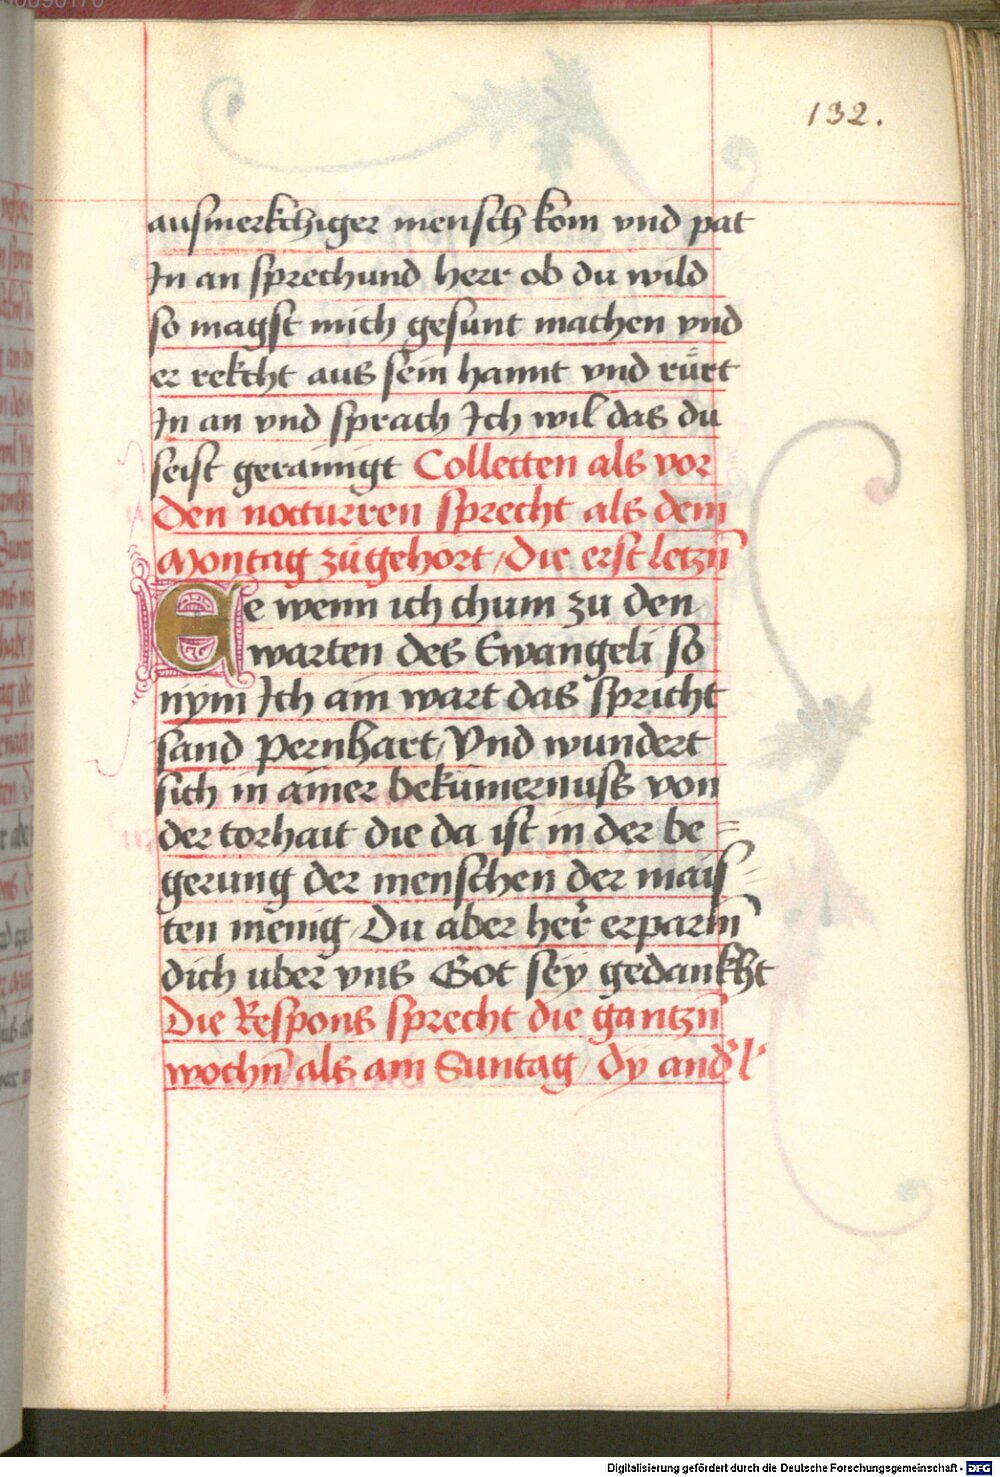 132.
ausmerkchiger mensch kom vnd pat
In an sprechund herr ob du wild
so magst mich gesunt machen vnd
er rekcht aus sein hannt vnd rürt
In an vnd sprach Ich wil das du
seist gerainigt Collecten als vor
den nocturren sprecht als dem
Montag zůgehört / Die erst letzn̄
Ee wenn ich chum zu den
warten des Ewangeli so
nym Ich ain wart das spricht
sand Pernhart / Vnd wundert
sich in ainer bekümernuss von
der torhait die da ist in der be=
gerung der menschen der mais=
ten menig / Du aber her̄ erparm̄
dich uber vns Got sey gedankht
Die Respons sprecht die gantzn̄
wochn̄ als am Suntag / Dy and' l'
Digitalisierung gefördert durch die Deutsche Forschungsgemeinschaft - DFG